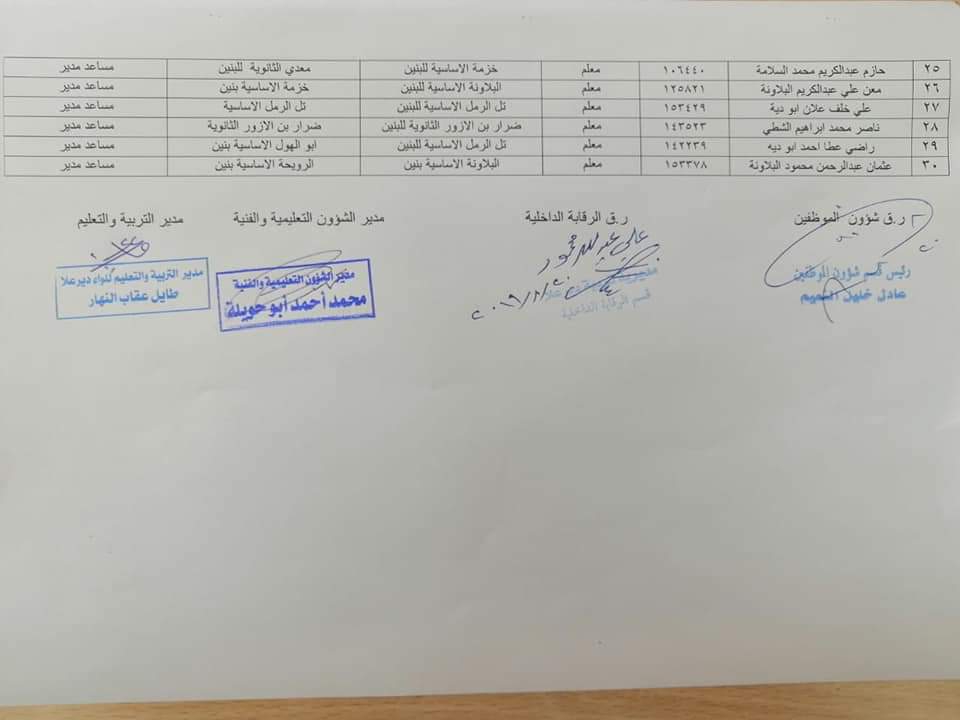 ٢٥ حازم عبدالكريم محمد السلامة ١٠٦٤٤٠ معلم خزمة الاساسية للبنين معدي الثانوية للبنين مساعد مدير
٢٦ معن علي عبدالكريم البلاونة ١٢٥٨٢١ معلم البلاونة الاساسية للبنين خزمة الاساسية بنين مساعد مدير
٢٧ علي خلف علان ابو دية ١٥٣٤٢٩ معلم تل الرمل الاساسية للبنين تل الرمل الاساسية مساعد مدير
٢٨ ناصر محمد ابراهيم الشطي ١٤٣٥٢٣ معلم ضرار بن الازور الثانوية للبنين ضرار بن الازور الثانوية مساعد مدير
٢٩ راضي عطا احمد ابو ديه ١٤٢٢٣٩ معلم تل الرمل الاساسية للبنين ابو الهول الاساسية بنين مساعد مدير
٣٠ عثمان عبدالرحمن محمود البلاونة ١٥٣٣٧٨ معلم البلاونة الاساسية بنين الرويحة الاساسية بنين مساعد مدير
ر.ق شؤون الموظفين ر.ق الرقابة الداخلية مدير الشؤون التعليمية والفنية مدير التربية والتعليم
رئيس قسم شؤون الموظفين
عادل خليل
علي عبدالله محمود
قسم الرقابة الداخلية
مدير الشؤون التعليمية والفنية
محمد أحمد أبو حويلة
مدير التربية والتعليم للواء ديرعلا
طايل عقاب النهار